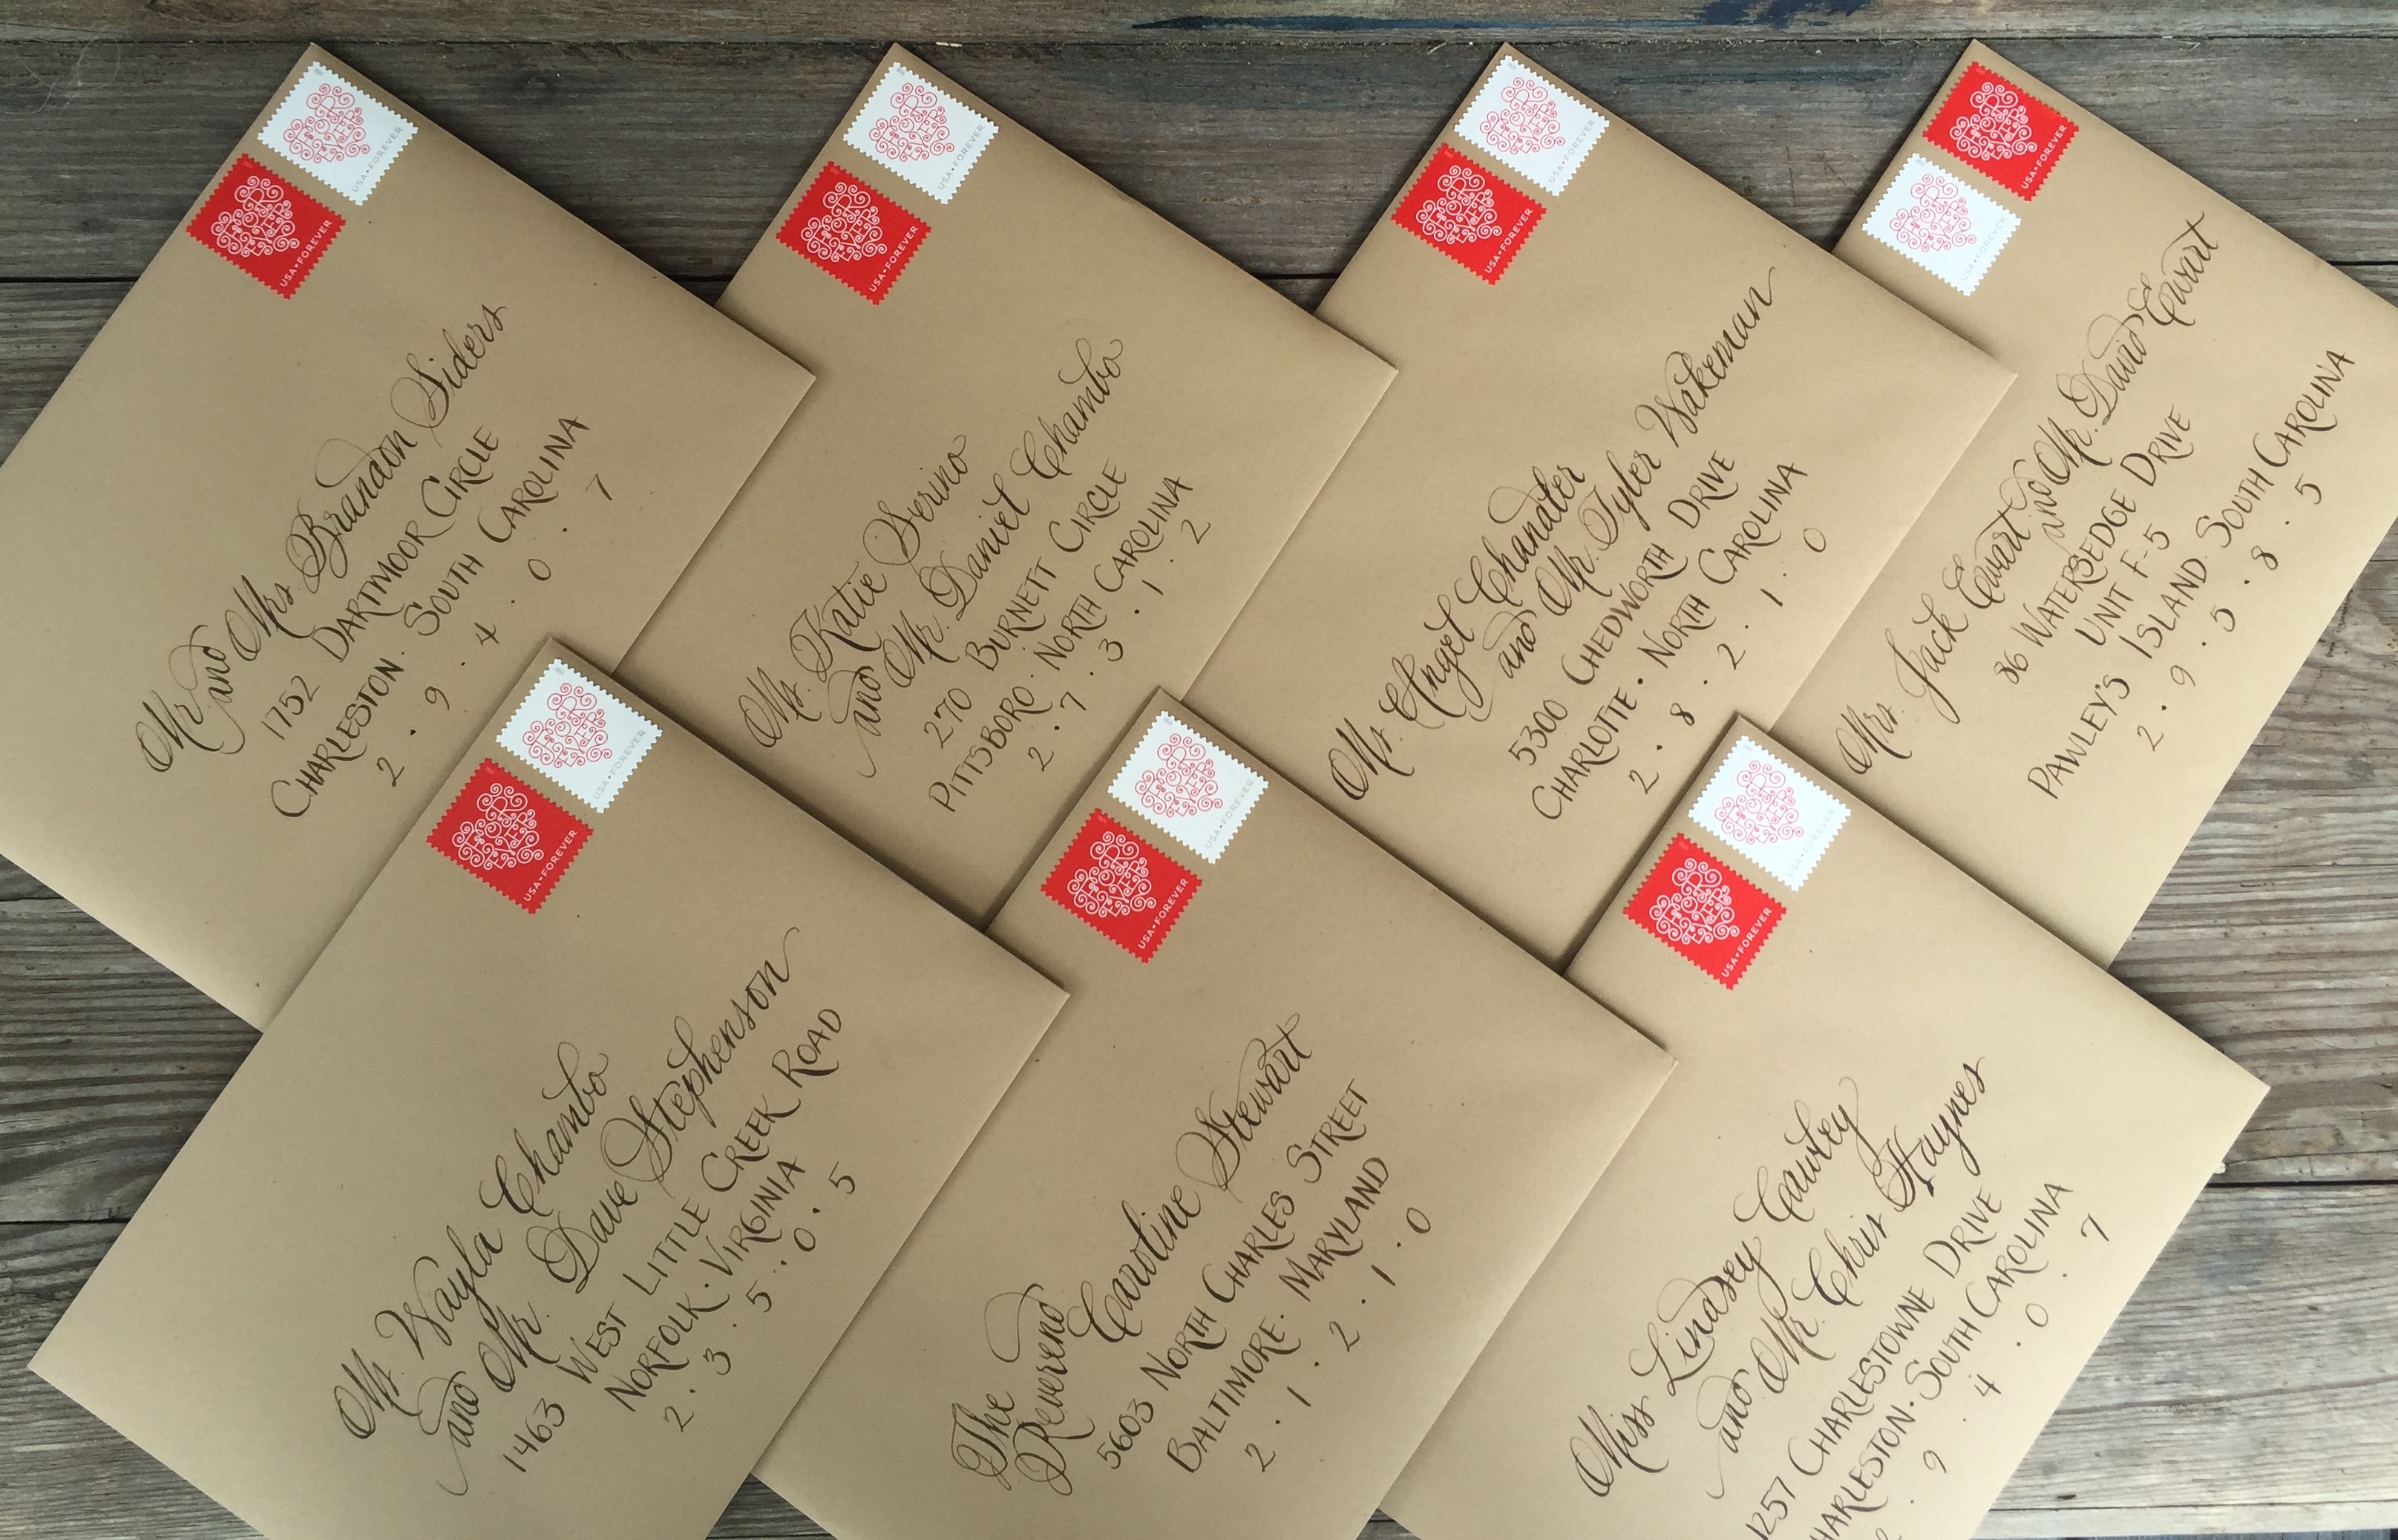 FOREVER
USA • FOREVER
FOREVER
USA • FOREVER
Mr. and Mrs. Brandon Siders
1752 DARTMOOR CIRCLE
CHARLESTON · SOUTH CAROLINA
2 · 9 · 4 · 0 · 7
FOREVER
USA • FOREVER
FOREVER
USA • FOREVER
Ms. Katie Serino
and Mr. Daniel Chambo
270 BURNETT CIRCLE
PITTSBORO · NORTH CAROLINA
2 · 7 · 3 · 1 · 2
FOREVER
USA • FOREVER
FOREVER
USA • FOREVER
Ms. Angel Chandler
and Mr. Tyler Wakeman
5300 CHEDWORTH DRIVE
CHARLOTTE · NORTH CAROLINA
2 · 8 · 2 · 1 · 0
FOREVER
USA • FOREVER
FOREVER
USA • FOREVER
Mrs. Jack Ewart and Mr. David Ewart
86 WATERSEDGE DRIVE
UNIT F-5
PAWLEY'S ISLAND · SOUTH CAROLINA
2 · 9 · 5 · 8 · 5
FOREVER
USA • FOREVER
FOREVER
USA • FOREVER
Ms. Wayla Chambo
and Mr. Dave Stephenson
1463 WEST LITTLE CREEK ROAD
NORFOLK · VIRGINIA
2 · 3 · 5 · 0 · 5
FOREVER
USA • FOREVER
FOREVER
USA • FOREVER
The Reverend Caroline Stewart
5603 NORTH CHARLES STREET
BALTIMORE · MARYLAND
2 · 1 · 2 · 1 · 0
FOREVER
USA • FOREVER
FOREVER
USA • FOREVER
Miss Lindsey Cawley
and Mr. Chris Haynes
1257 CHARLESTOWNE DRIVE
CHARLESTON · SOUTH CAROLINA
2 · 9 · 4 · 0 · 7